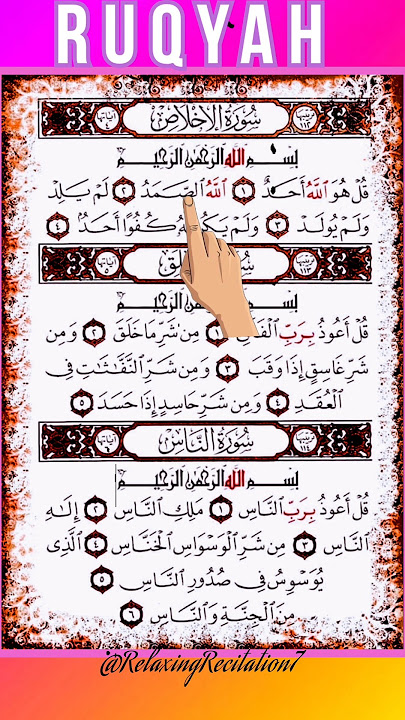 RUQYAH
سُورَةُ الإِخْلَاصِ
بِسْمِ اللَّهِ الرَّحْمَٰنِ الرَّحِيمِ
قُلْ هُوَ ٱللَّهُ أَحَدٌ ١ ٱللَّهُ ٱلصَّمَدُ ٢ لَمْ يَلِدْ
وَلَمْ يُولَدْ ٣ وَلَمْ يَكُن كُفُوًا أَحَدٌ ٤
بِسْمِ اللَّهِ الرَّحْمَٰنِ الرَّحِيمِ
قُلْ أَعُوذُ بِرَبِّ ٱلْفَلَقِ ١ مِن شَرِّ مَا خَلَقَ ٢ وَمِن
شَرِّ غَاسِقٍ إِذَا وَقَبَ ٣ وَمِن شَرِّ ٱلنَّفَّٰثَٰتِ فِى
ٱلْعُقَدِ ٤ وَمِن شَرِّ حَاسِدٍ إِذَا حَسَدَ ٥
سُورَةُ النَّاسِ
بِسْمِ اللَّهِ الرَّحْمَٰنِ الرَّحِيمِ
قُلْ أَعُوذُ بِرَبِّ ٱلنَّاسِ ١ مَلِكِ ٱلنَّاسِ ٢ إِلَٰهِ
ٱلنَّاسِ ٣ مِن شَرِّ ٱلْوَسْوَاسِ ٱلْخَنَّاسِ ٤ ٱلَّذِى
يُوَسْوِسُ فِى صُدُورِ ٱلنَّاسِ ٥
مِنَ ٱلْجِنَّةِ وَٱلنَّاسِ ٦
@RelaxingRecitation7